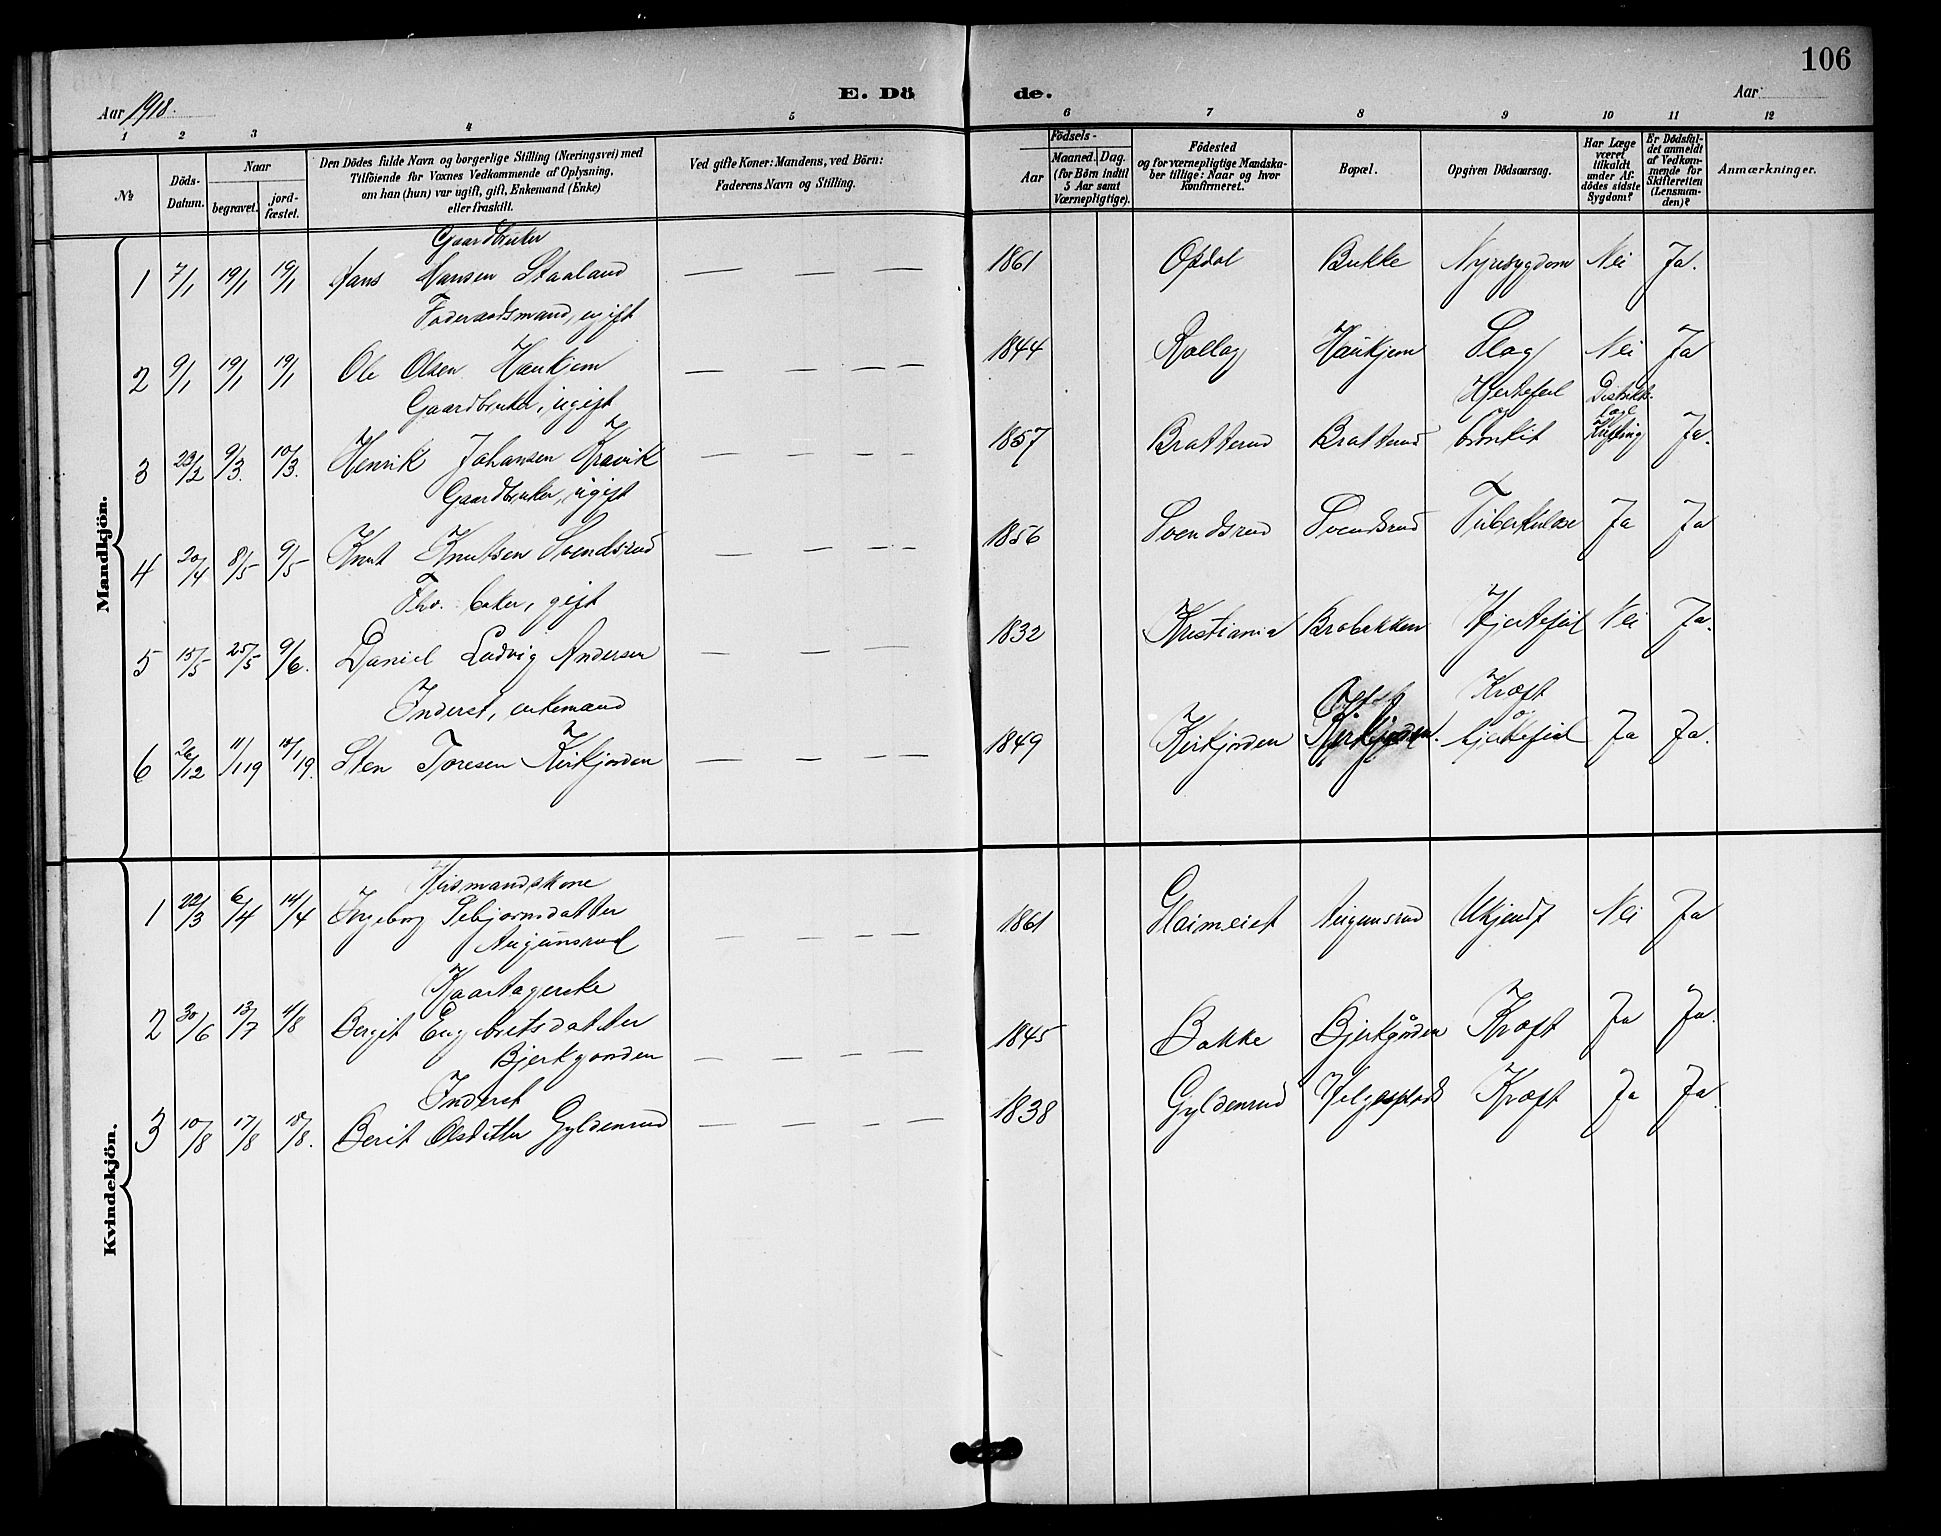 106
Aar 1918.
E. Dö de.
Aar
1 2 3 4 5 6 7 8 9 10 11 12
№
Döds-Datum.
Naar
begravet.
jord-fæstet.
Den Dödes fulde Navn og borgerlige Stilling (Næringsvei) med
Tilföiende for Voxnes Vedkommende af Oplysning,
om han (hun) var ugift, gift, Enkemand (Enke)
eller fraskilt.
Ved gifte Koner: Mandens, ved Börn:
Faderens Navn og Stilling.
Födsels-
Aar
Maaned. Dag.
(for Börn indtil
5 Aar samt
Værnepligtige).
Födested
og for værnepligtige Mandska-
ber tillige: Naar og hvor
konfirmeret.
Bopæl.
Opgiven Dödsaarsag.
Har Læge
været
tilkaldt
under Af-
dödes sidste
Sygdom?
Er Dödsfal-
det anmeldt
af Vedkom-
mende for
Skifteretten
(Lensman-
den)?
Anmærkninger.
Mandkjön.
Gaardbruker
1 7/1 19/1 19/1 Hans Hansen Staaland — — — 1861 Opdal Bakke Nyresygdom Nei Ja.
Foderaadsmand, ugift
2 9/1 19/1 19/1 Ole Olsen Haukjem — — — — 1844 Rollag Haukjem Slag Nei Ja
Gaardbruker, ugift Hjertefeil Distrikts-
læge
3 23/2 9/3. 10/3. Henrik Johansen Kravik — — — — 1857 Bratterud Bratterud bronkit Ja.
Gaardbruker, ugift
4 20/4 8/5 9/5 Knut Knutsen Svendsrud — — — — 1856 Svendsrud Svendsrud Tuberkulose Ja Ja
Fhv. baker, gift
5 15/5 25/5 9/6. Daniel Ludvig Andersen — — — 1832 Kristiania Brobakken Hjertefeil Nei Ja.
Inderst, enkemand Kræft
og
6 26/12 11/1 19 18/1 19. Sten Toresen Kirkjorden — — — — 1849 Kirkjorden Kirkjorden. hjertefeil Ja Ja.
Kvindekjön.
Husmandskone
1 22/3 6/4 14/4 Ingeborg Sebjørnsdatter
Augunsrud — — — — 1861 Glaimeiet Augunsrud Ukjendt Nei Ja
Kaartagerske
2 30/6 13/7 4/8 Bergit Engebretsdatter
Bjerkgorden — — — — 1845 Bakke Bjerkgården Kræft Ja Ja.
Inderst
3 10/8 17/8 18/8. Berit Olsdatter Gyldenrud — — — — 1838 Gyldenrud Helgesplads Kræft Ja Ja